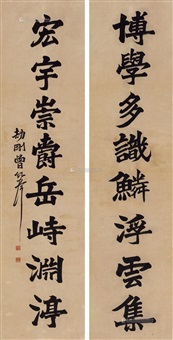 博學多識鱗浮雲集
宏宇崇爵岳峙淵渟
劼剛曾紀澤